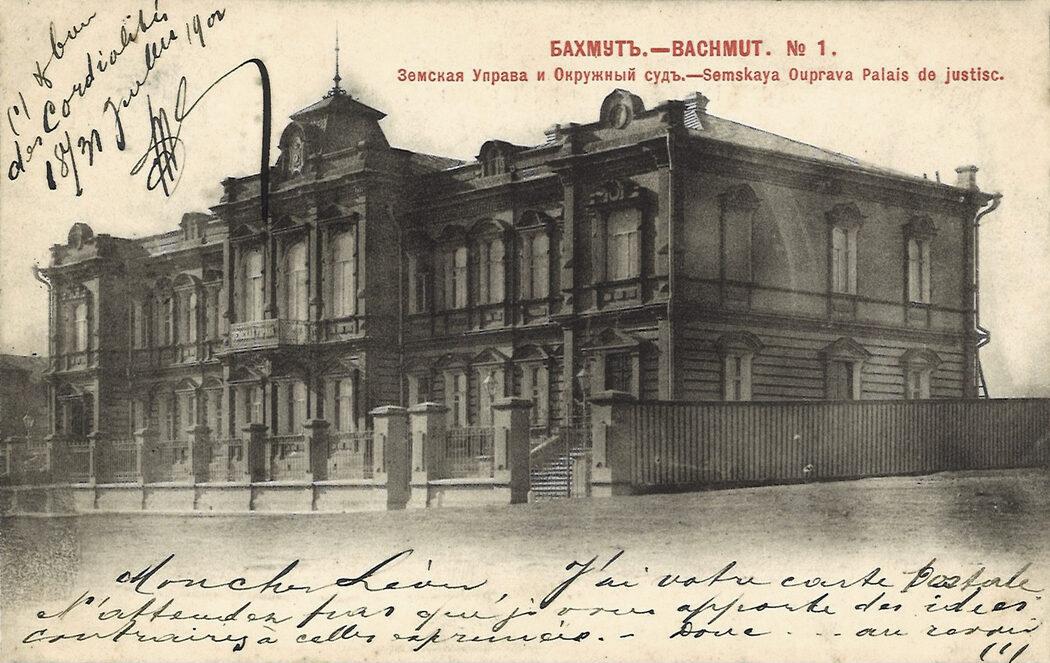 БАХМУТЪ.—BACHMUT. № 1.
Земская Управа и Окружный судъ.—Semskaya Ouprava Palais de justisc.
(1) & bon
des Cordialités
18/31 Juillet 1901
Mon cher Léon J'ai votre carte Postale
N'attendez pas que je vous apporte des idées
contraires à celles exprimées.— Donc . . . au revoir
(1)